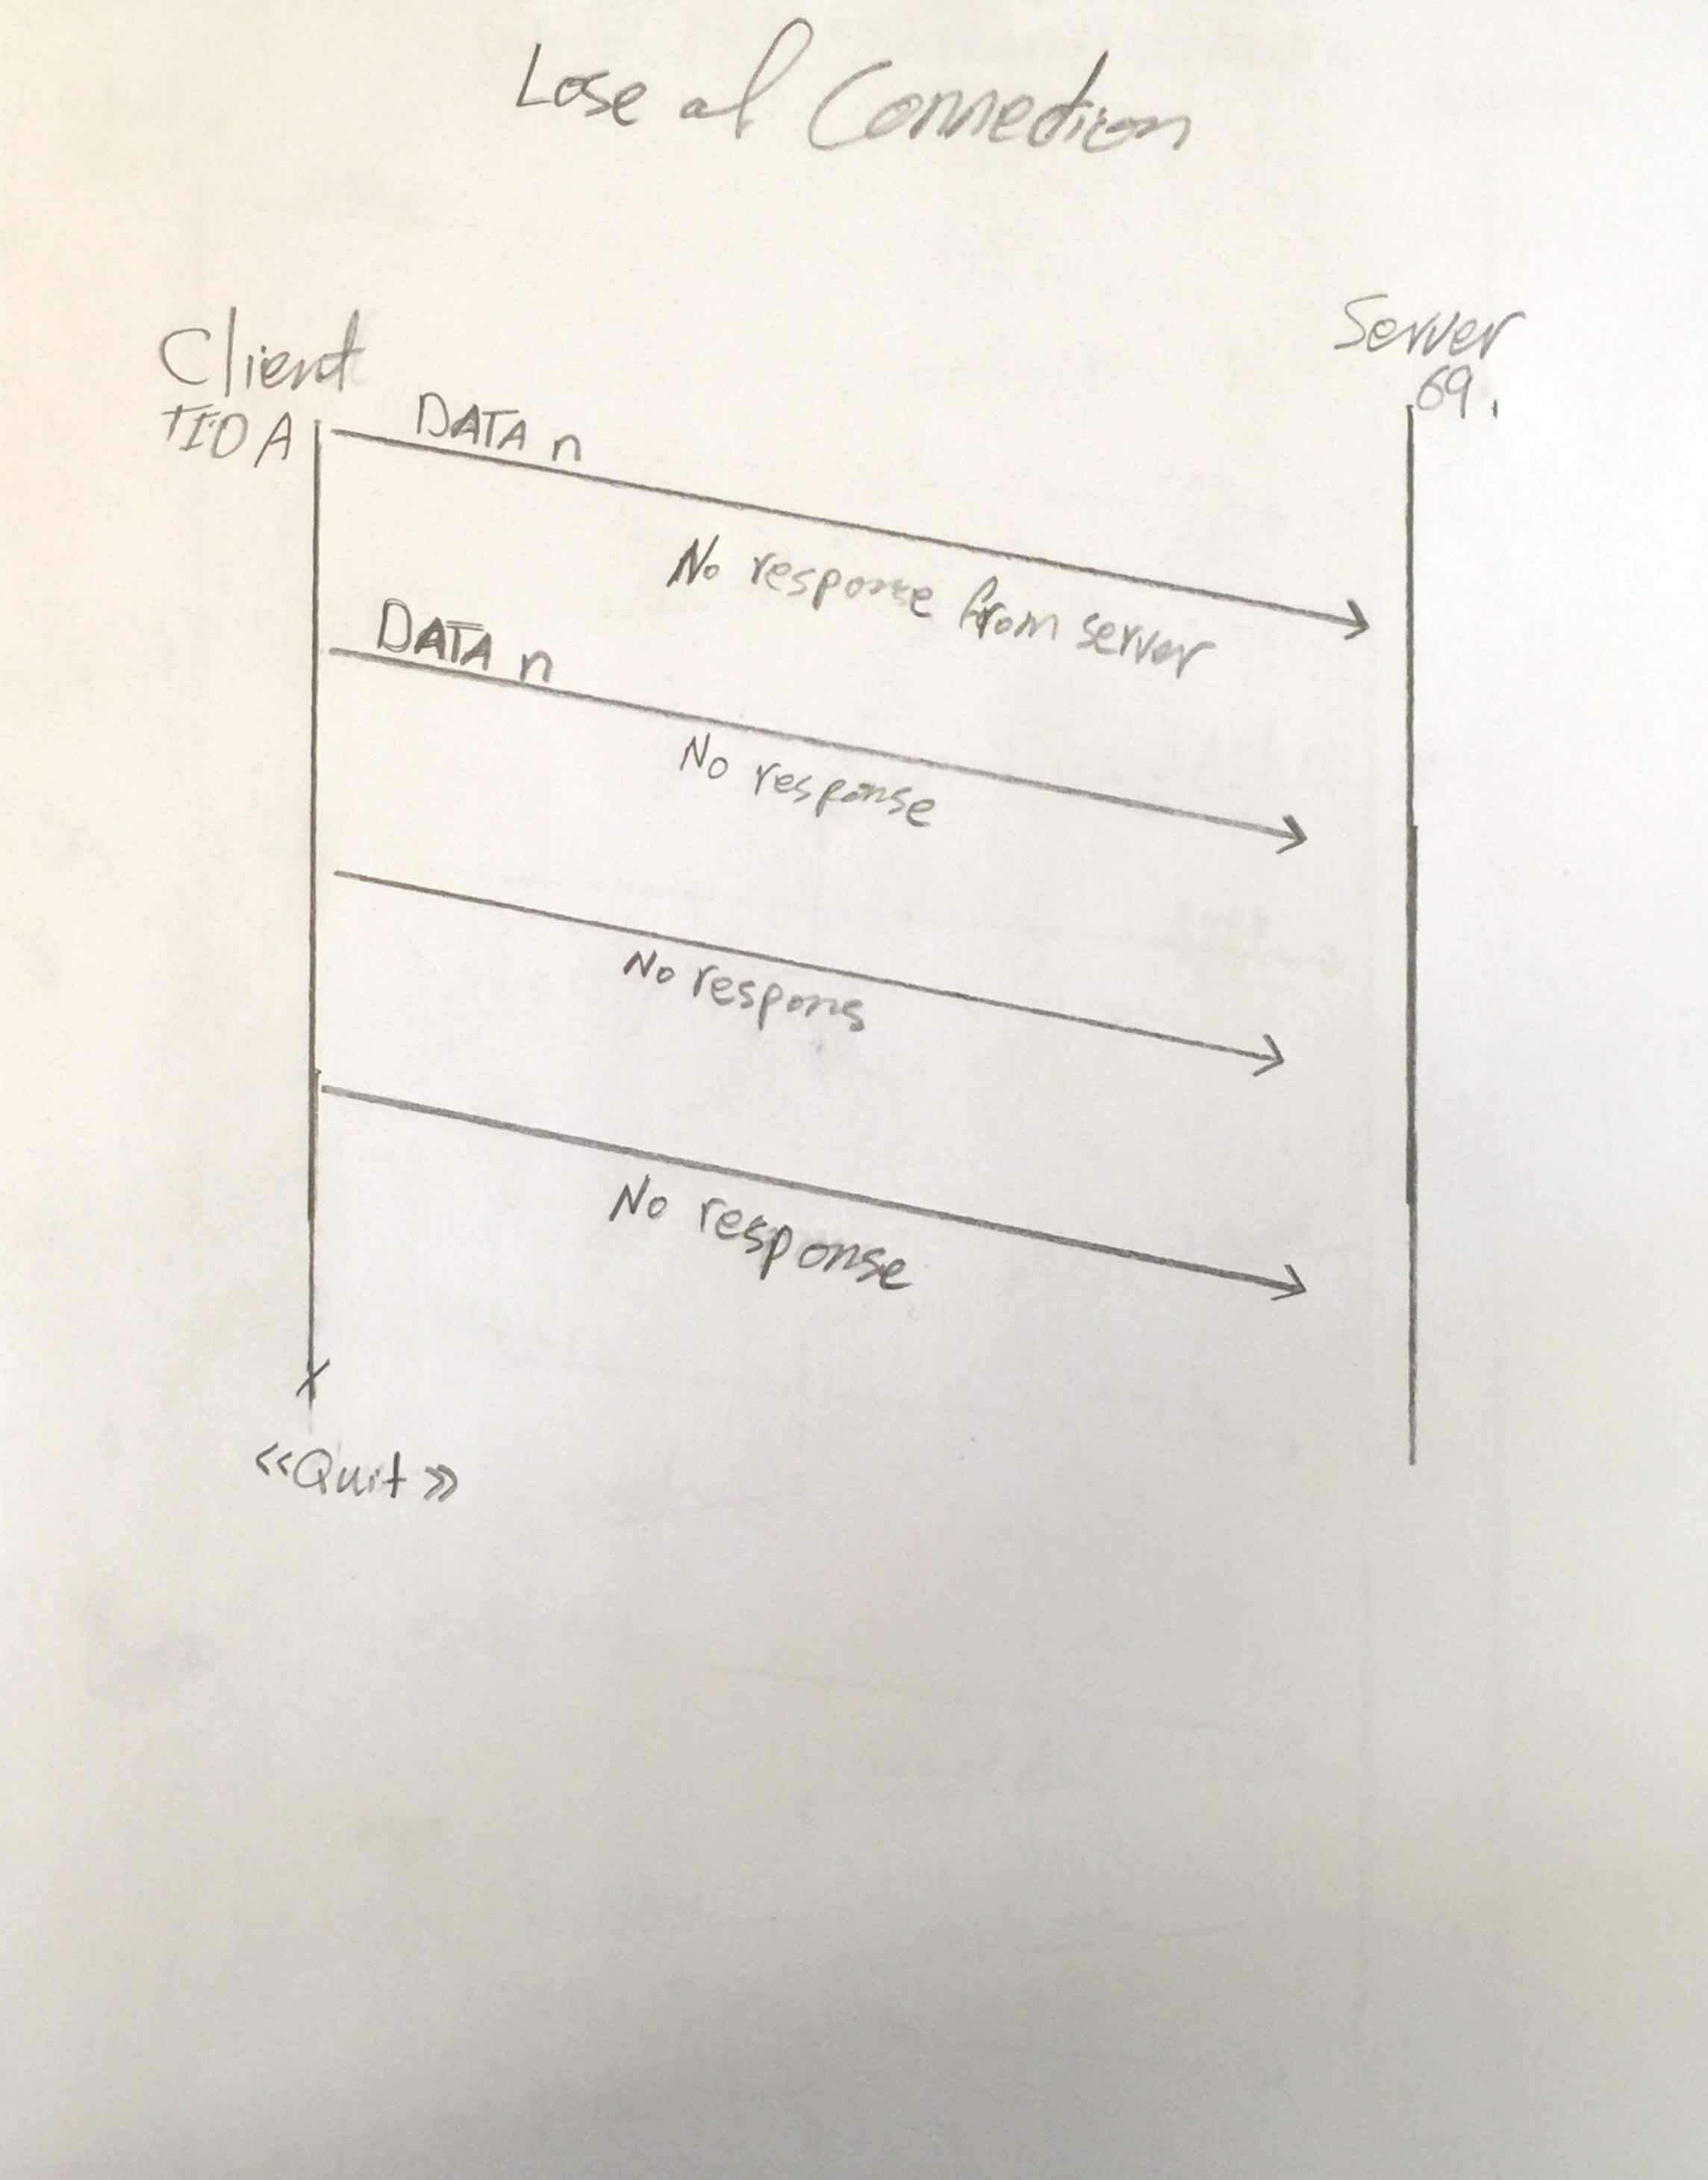 Lose of Connection
Client
TID A
Server
69.
DATA n
No response from server
DATA n
No response
No respons
No response
<<Quit>>